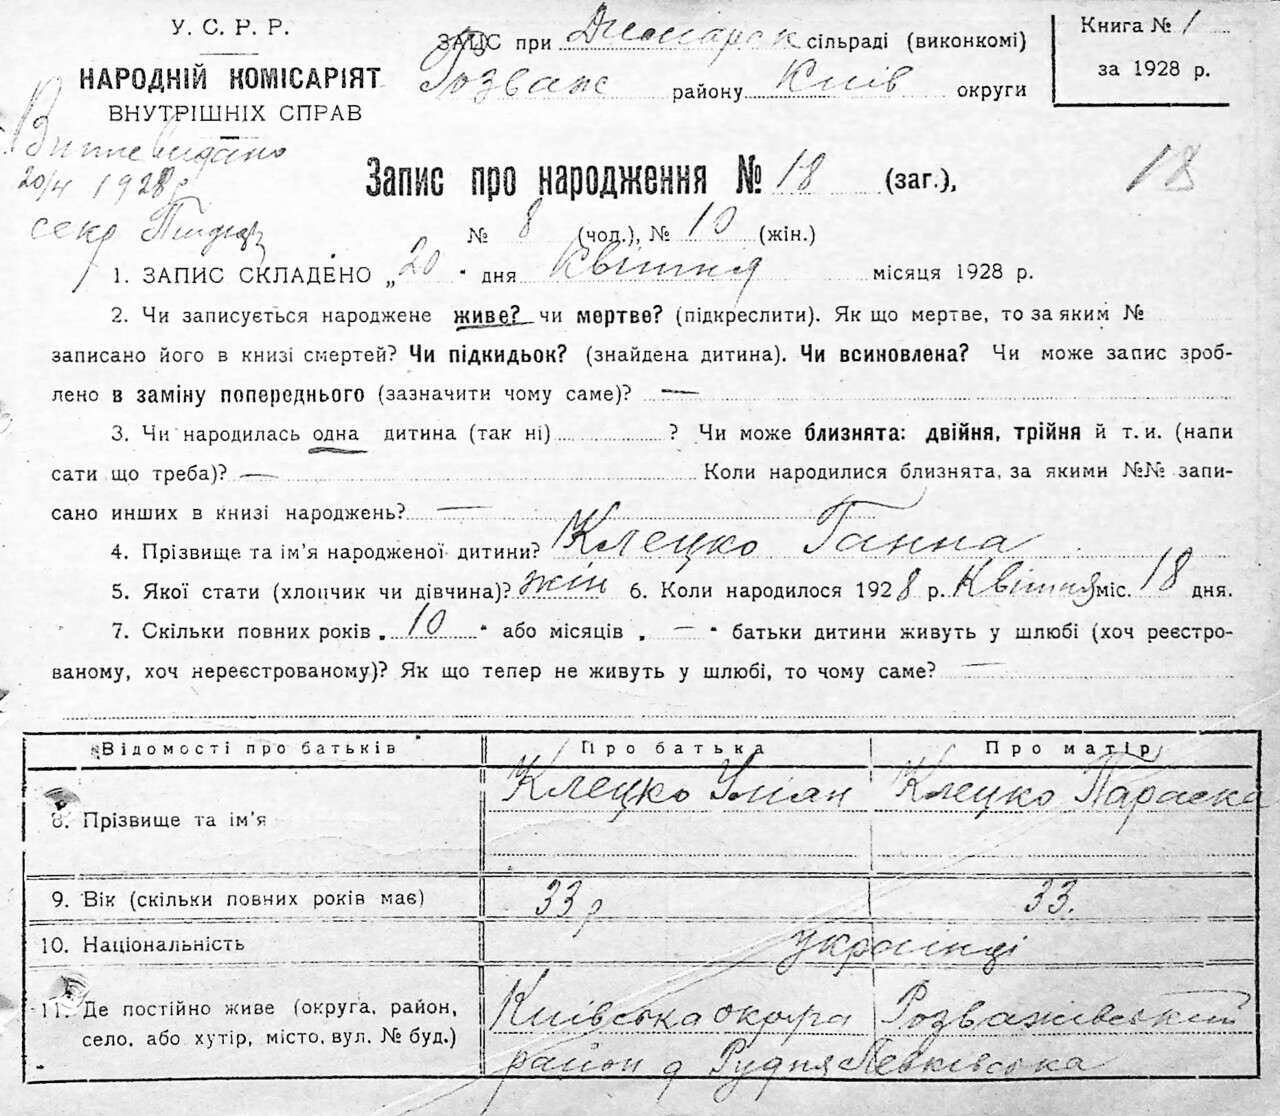 У. С. Р. Р.
НАРОДНІЙ КОМІСАРІЯТ
ВНУТРІШНІХ СПРАВ
ЗАПИС при сільраді (виконкомі)
Розваж району Київ округи
Книга № 1
за 1928 р.
Витяг видано
20/4 1928 р
секр
Запис про народження № 18 (заг.),
18
№ 8 (чол.), № 10 (жін.)
1. ЗАПИС СКЛАДЕНО „20" дня Квітня місяця 1928 р.
2. Чи записується народжене живе? чи мертве? (підкреслити). Як що мертве, то за яким №
записано його в книзі смертей? Чи підкидьок? (знайдена дитина). Чи всиновлена? Чи може запис зроб-
лено в заміну попереднього (зазначити чому саме)? —
3. Чи народилась одна дитина (так ні) ? Чи може близнята: двійня, трійня й т. и. (напи
сати що треба)? — Коли народилися близнята, за якими №№ запи-
сано инших в книзі народжень? —
4. Прізвище та ім'я народженої дитини? Клецко Ганна
5. Якої стати (хлопчик чи дівчина)? жін 6. Коли народилося 1928 р. Квітня міс. 18 дня.
7. Скільки повних років „10" або місяців „—" батьки дитини живуть у шлюбі (хоч реєстро-
ваному, хоч нереєстрованому)? Як що тепер не живуть у шлюбі, то чому саме? —
Відомості про батьків Про батька Про матір
8. Прізвище та ім'я Клецко Уліян Клецко Параска
9. Вік (скільки повних років має) 33 р 33.
10. Національність українці
11. Де постійно живе (округа, район, Київська округа Розважівський
село, або хутір, місто, вул. № буд.) район с Рудня Левківська